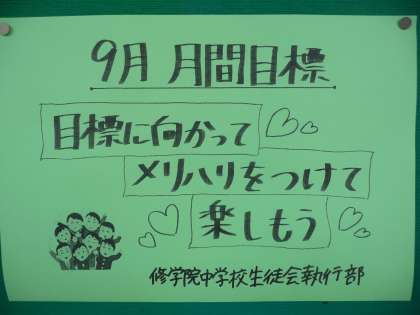 9月 月間目標
目標に向かって
メリハリをつけて
楽しもう
修学院中学校生徒会執行部